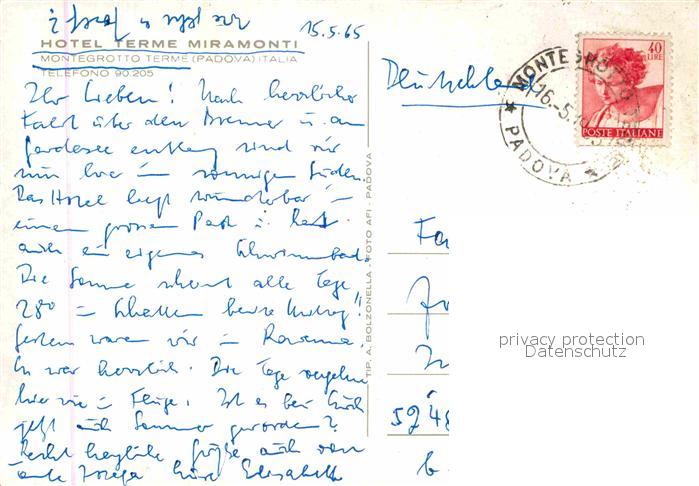 15.5.65
HOTEL TERME MIRAMONTI
MONTEGROTTO TERME (PADOVA) ITALIA
TELEFONO 90.205
Ihr Lieben! Nach herrlicher
Fahrt über den Brenner u. am
Gardasee entlang sind wir
nun hier im sonnigen Süden.
Das Hotel liegt wunderbar in
einem grossen Park u. hat
auch ein eigenes Schwimmbad.
Die Sonne scheint alle Tage
28° im Schatten heute Mittag!!
Gestern waren wir in Ravenna.
Es war herrlich. Die Tage vergehen
hier wie im Fluge. Ist es bei Euch
jetzt auch Sommer geworden?
Recht herzliche Grüße auch von
Tante Eure Elisabeth
TIP. A. BOLZONELLA - FOTO AFI - PADOVA
Deutschland
MONTEGROTTO
16.5.19
* PADOVA *
40
LIRE
POSTE ITALIANE
Fa
524
b
privacy protection
Datenschutz